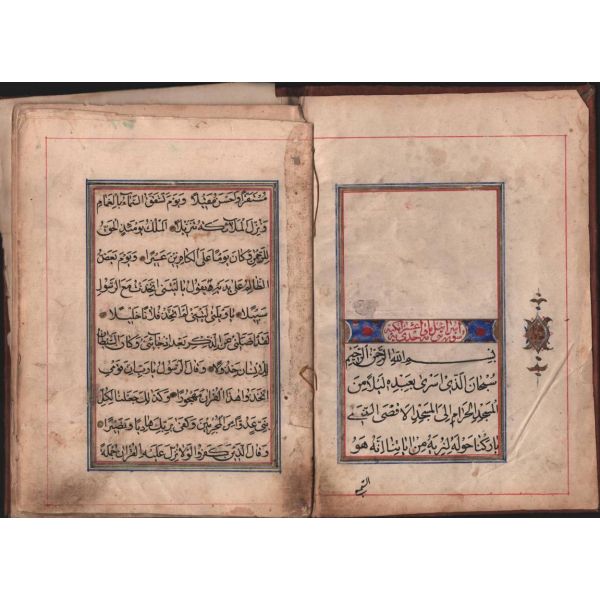 بسم الله الرحمن الرحيم
سبحان الذي اسرى بعبده ليلا من
المسجد الحرام الى المسجد الاقصى الذي
باركنا حوله لنريه من اياتنا انه هو
السميع
مستقرا واحسن مقيلا ويوم تشقق السماء بالغمام
ونزل الملائكة تنزيلا الملك يومئذ الحق
للرحمن وكان يوما على الكافرين عسيرا ويوم يعض
الظالم على يديه يقول ياليتني اتخذت مع الرسول
سبيلا ياويلتى ليتني لم اتخذ فلانا خليلا
لقد اضلني عن الذكر بعد اذ جاءني وكان الشيطان
للانسان خذولا وقال الرسول يارب ان قومي
اتخذوا هذا القران مهجورا وكذلك جعلنا لكل
نبي عدوا من المجرمين وكفى بربك هاديا ونصيرا
وقال الذين كفروا لولا نزل عليه القران جملة